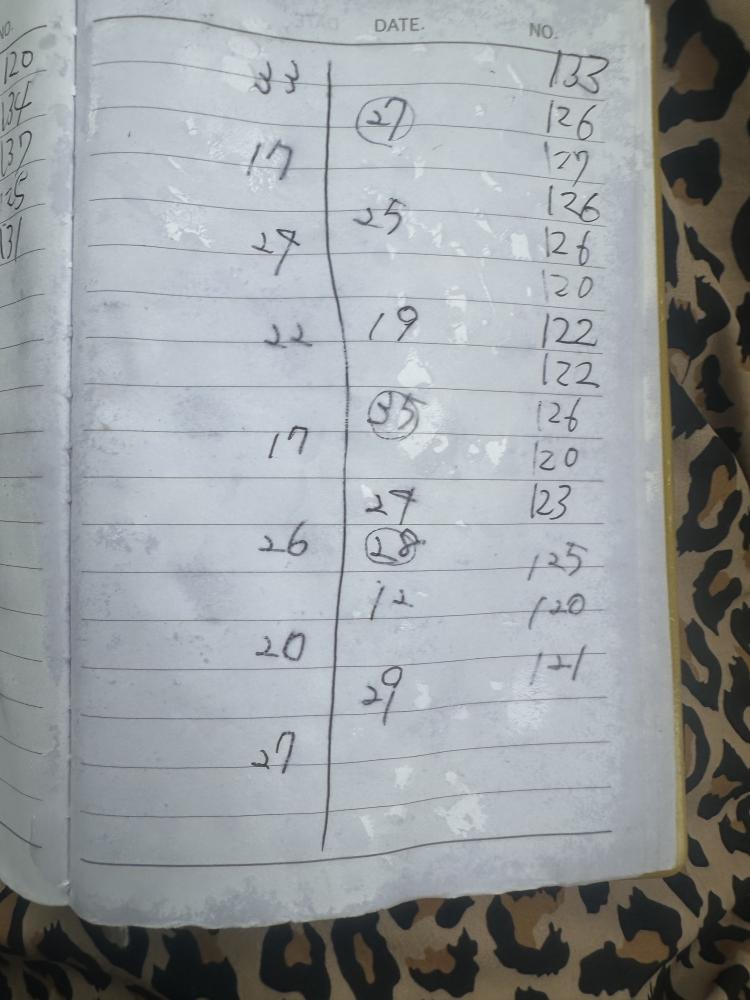 NO.
120
134
137
125
131
DATE. NO.
33 133
(27) 126
17 127
25 126
27 126
120
22 19 122
122
(35) 126
17 120
27 123
26 (28) 125
12 120
20 121
29
27